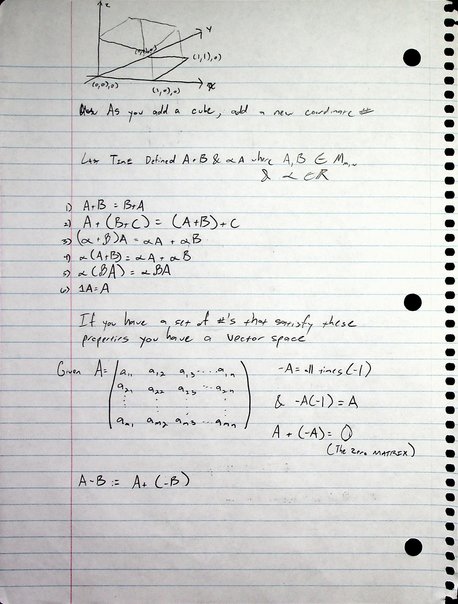 z
y
(0,1,0)
(1,1,0)
(0,0,0)
(1,0,0)
x
As you add a cube, add a new coordinate #
Last Time Defined A+B & αA where A, B ∈ Mm,n
& α ∈ ℝ
1) A+B = B+A
2) A + (B+C) = (A+B)+C
3) (α+β)A = αA + αB
4) α(A+B) = αA + αB
5) α(βA) = αβA
6) 1A=A
If you have a set of #'s that satisfy these
properties you have a vector space
Given A= (a11 a12 a13 ... a1n
-A= all times (-1)
a21 a22 a23 ... a2n
& -A(-1) = A
⋮ ⋮ ⋮
am1 am2 am3 ... amn)
A + (-A) = 0
(The zero MATRIX)
A-B := A+ (-B)